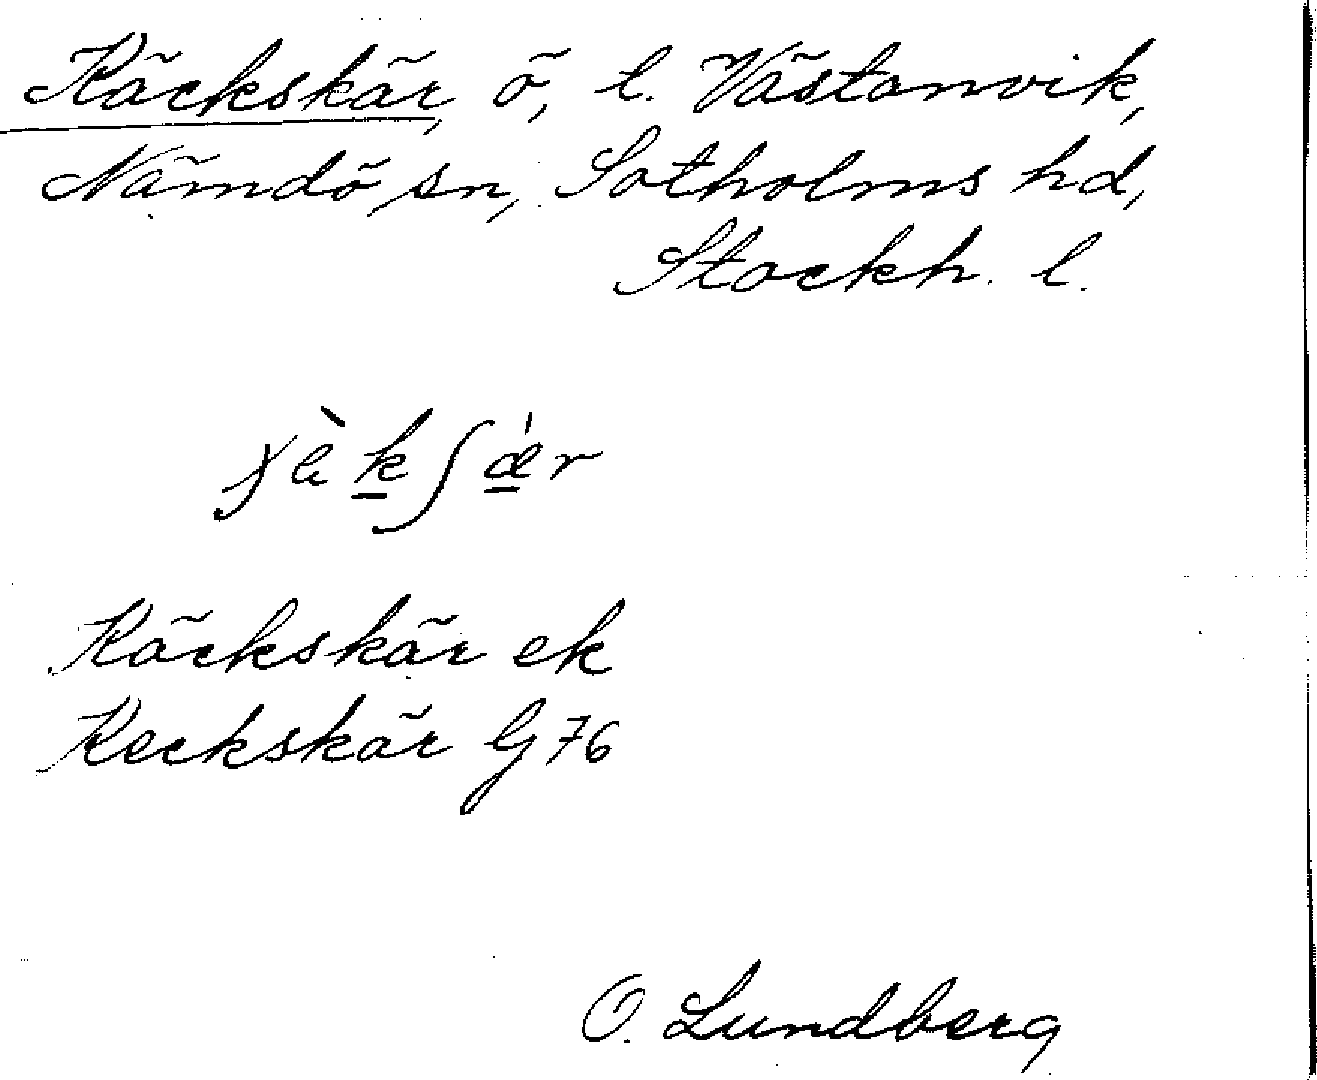 Käckskär, ö, l. Västanvik,
Nämdö sn, Sotholms hd,
Stockh. l.
Käckskär ek
Keckskär G 76
O. Lundberg